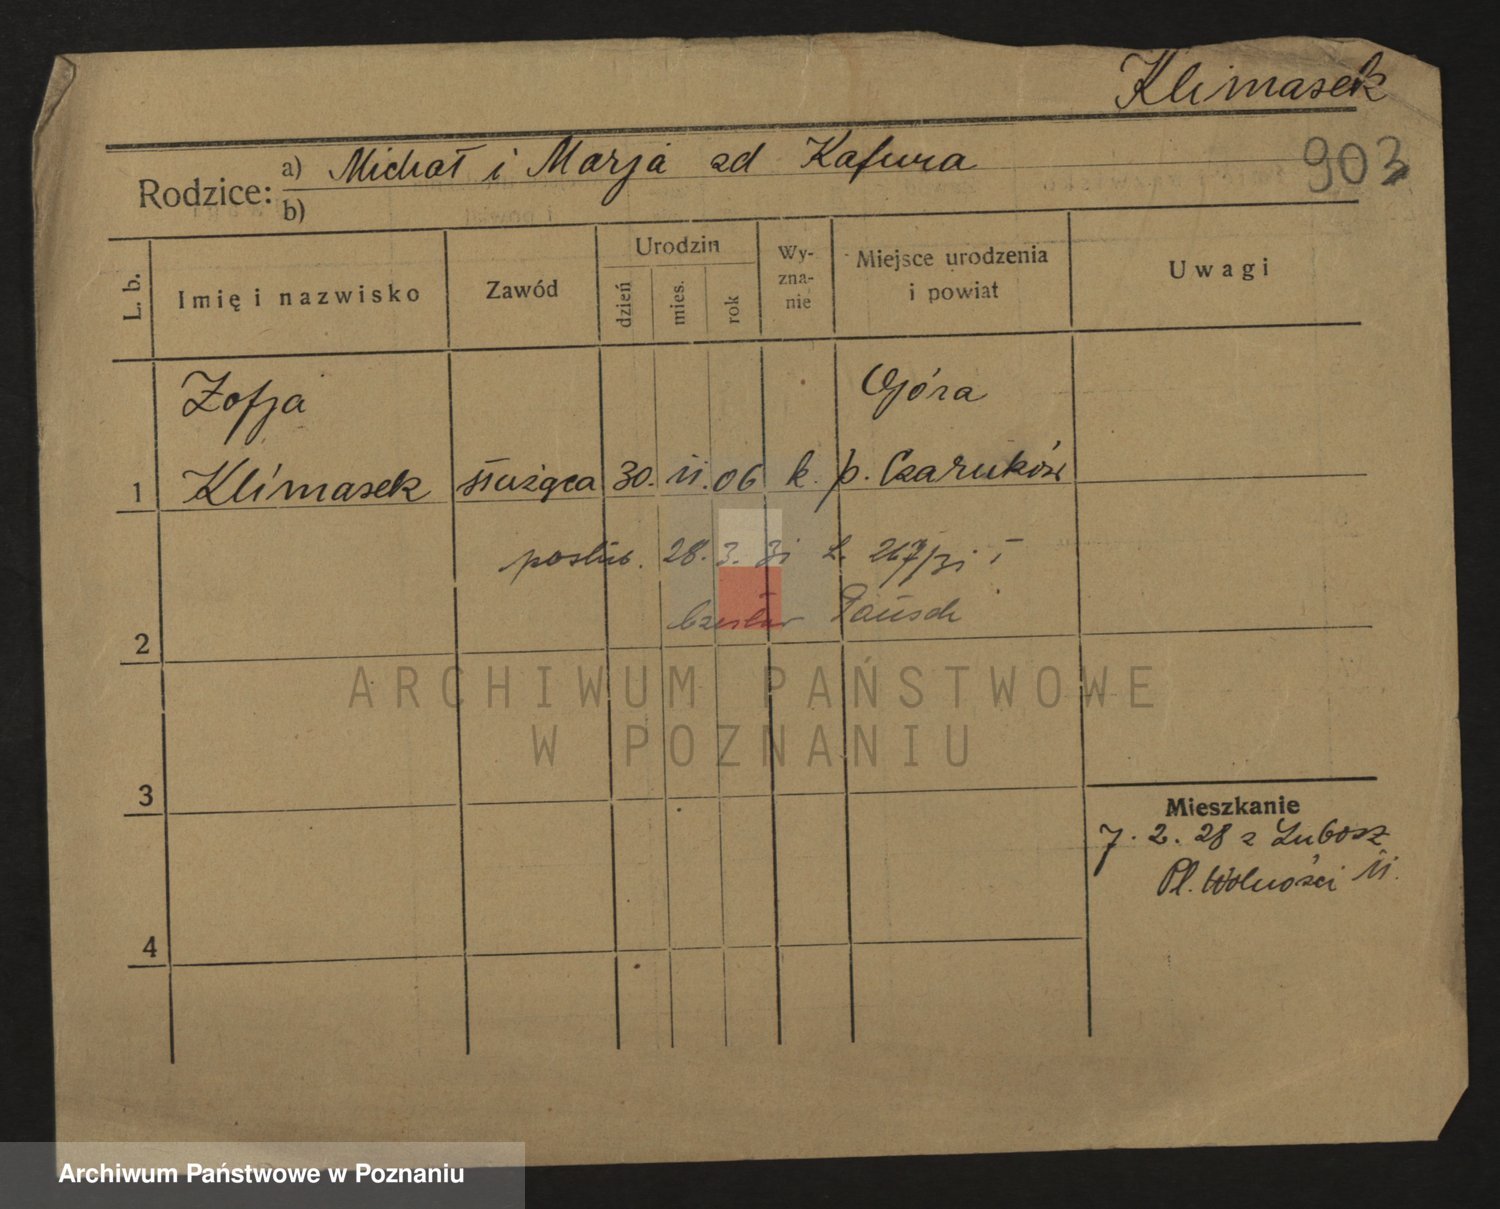 Klimasek
903
Rodzice: a) Michał i Marja zd Kafura
b)
L. b.
Imię i nazwisko
Zawód
Urodzin
dzień
mies.
rok
Wy-
zna-
nie
Miejsce urodzenia
i powiat
Uwagi
Zofja
Góra
1 Klimasek służąca 30. 11. 06 k. p. Czarnków
poślub. 28. 3. 31 L. 267/31 I
Czesław Pausch
2
ARCHIWUM PAŃSTWOWE
W POZNANIU
3
Mieszkanie
7. 2. 28 z Lubosz
Pl. Wolności 11.
4
Archiwum Państwowe w Poznaniu